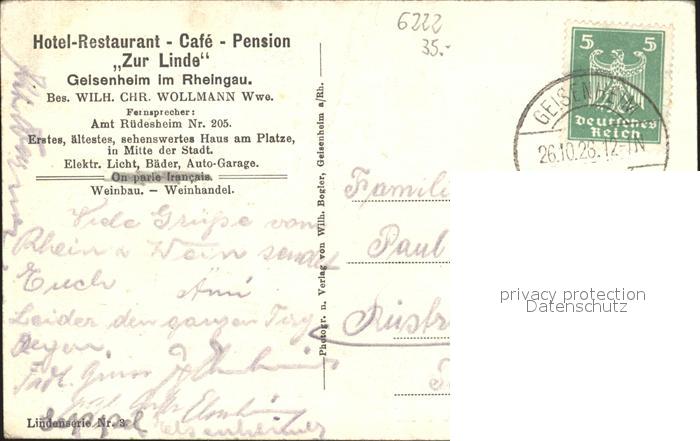 6222
35.-
Hotel-Restaurant - Café - Pension
„Zur Linde“
Geisenheim im Rheingau.
Bes. WILH. CHR. WOLLMANN Wwe.
Fernsprecher:
Amt Rüdesheim Nr. 205.
Erstes, ältestes, sehenswertes Haus am Platze,
in Mitte der Stadt.
Elektr. Licht, Bäder, Auto-Garage.
On parle français.
Weinbau. — Weinhandel.
Viele Grüße vom
Rhein u Wein sendet
Euch
Leider den ganzen Tag
Regen.
Lindenserie Nr. 3
Photogr. u. Verlag von Wilh. Bogler, Geisenheim a/Rh.
5 5
Deutsches
Reich
GEISENHEIM
26.10.26.12-1N
Famili
Paul
privacy protection
Datenschutz